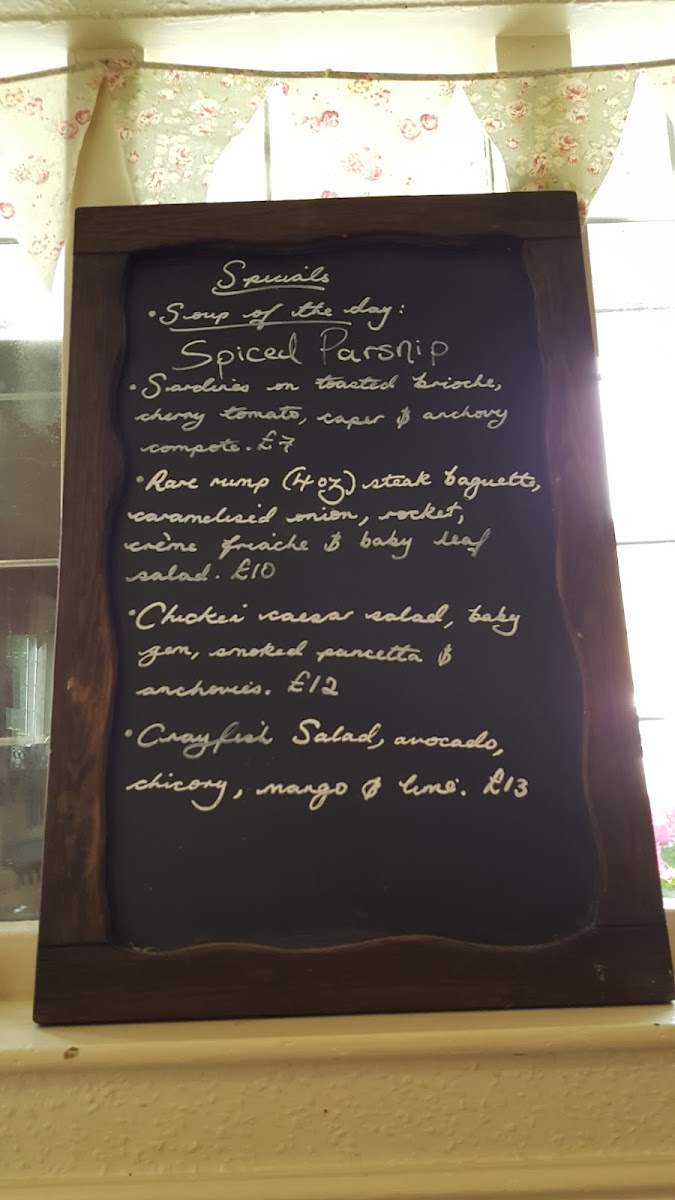 Specials
• Soup of the day:
Spiced Parsnip
• Sardines on toasted brioche,
cherry tomato, caper & anchovy
compote. £7
• Rare rump (4oz) steak baguette,
caramelised onion, rocket,
crème fraiche & baby leaf
salad. £10
• Chicken caesar salad, baby
gem, smoked pancetta &
anchovies. £12
• Crayfish Salad, avocado,
chicory, mango & lime. £13